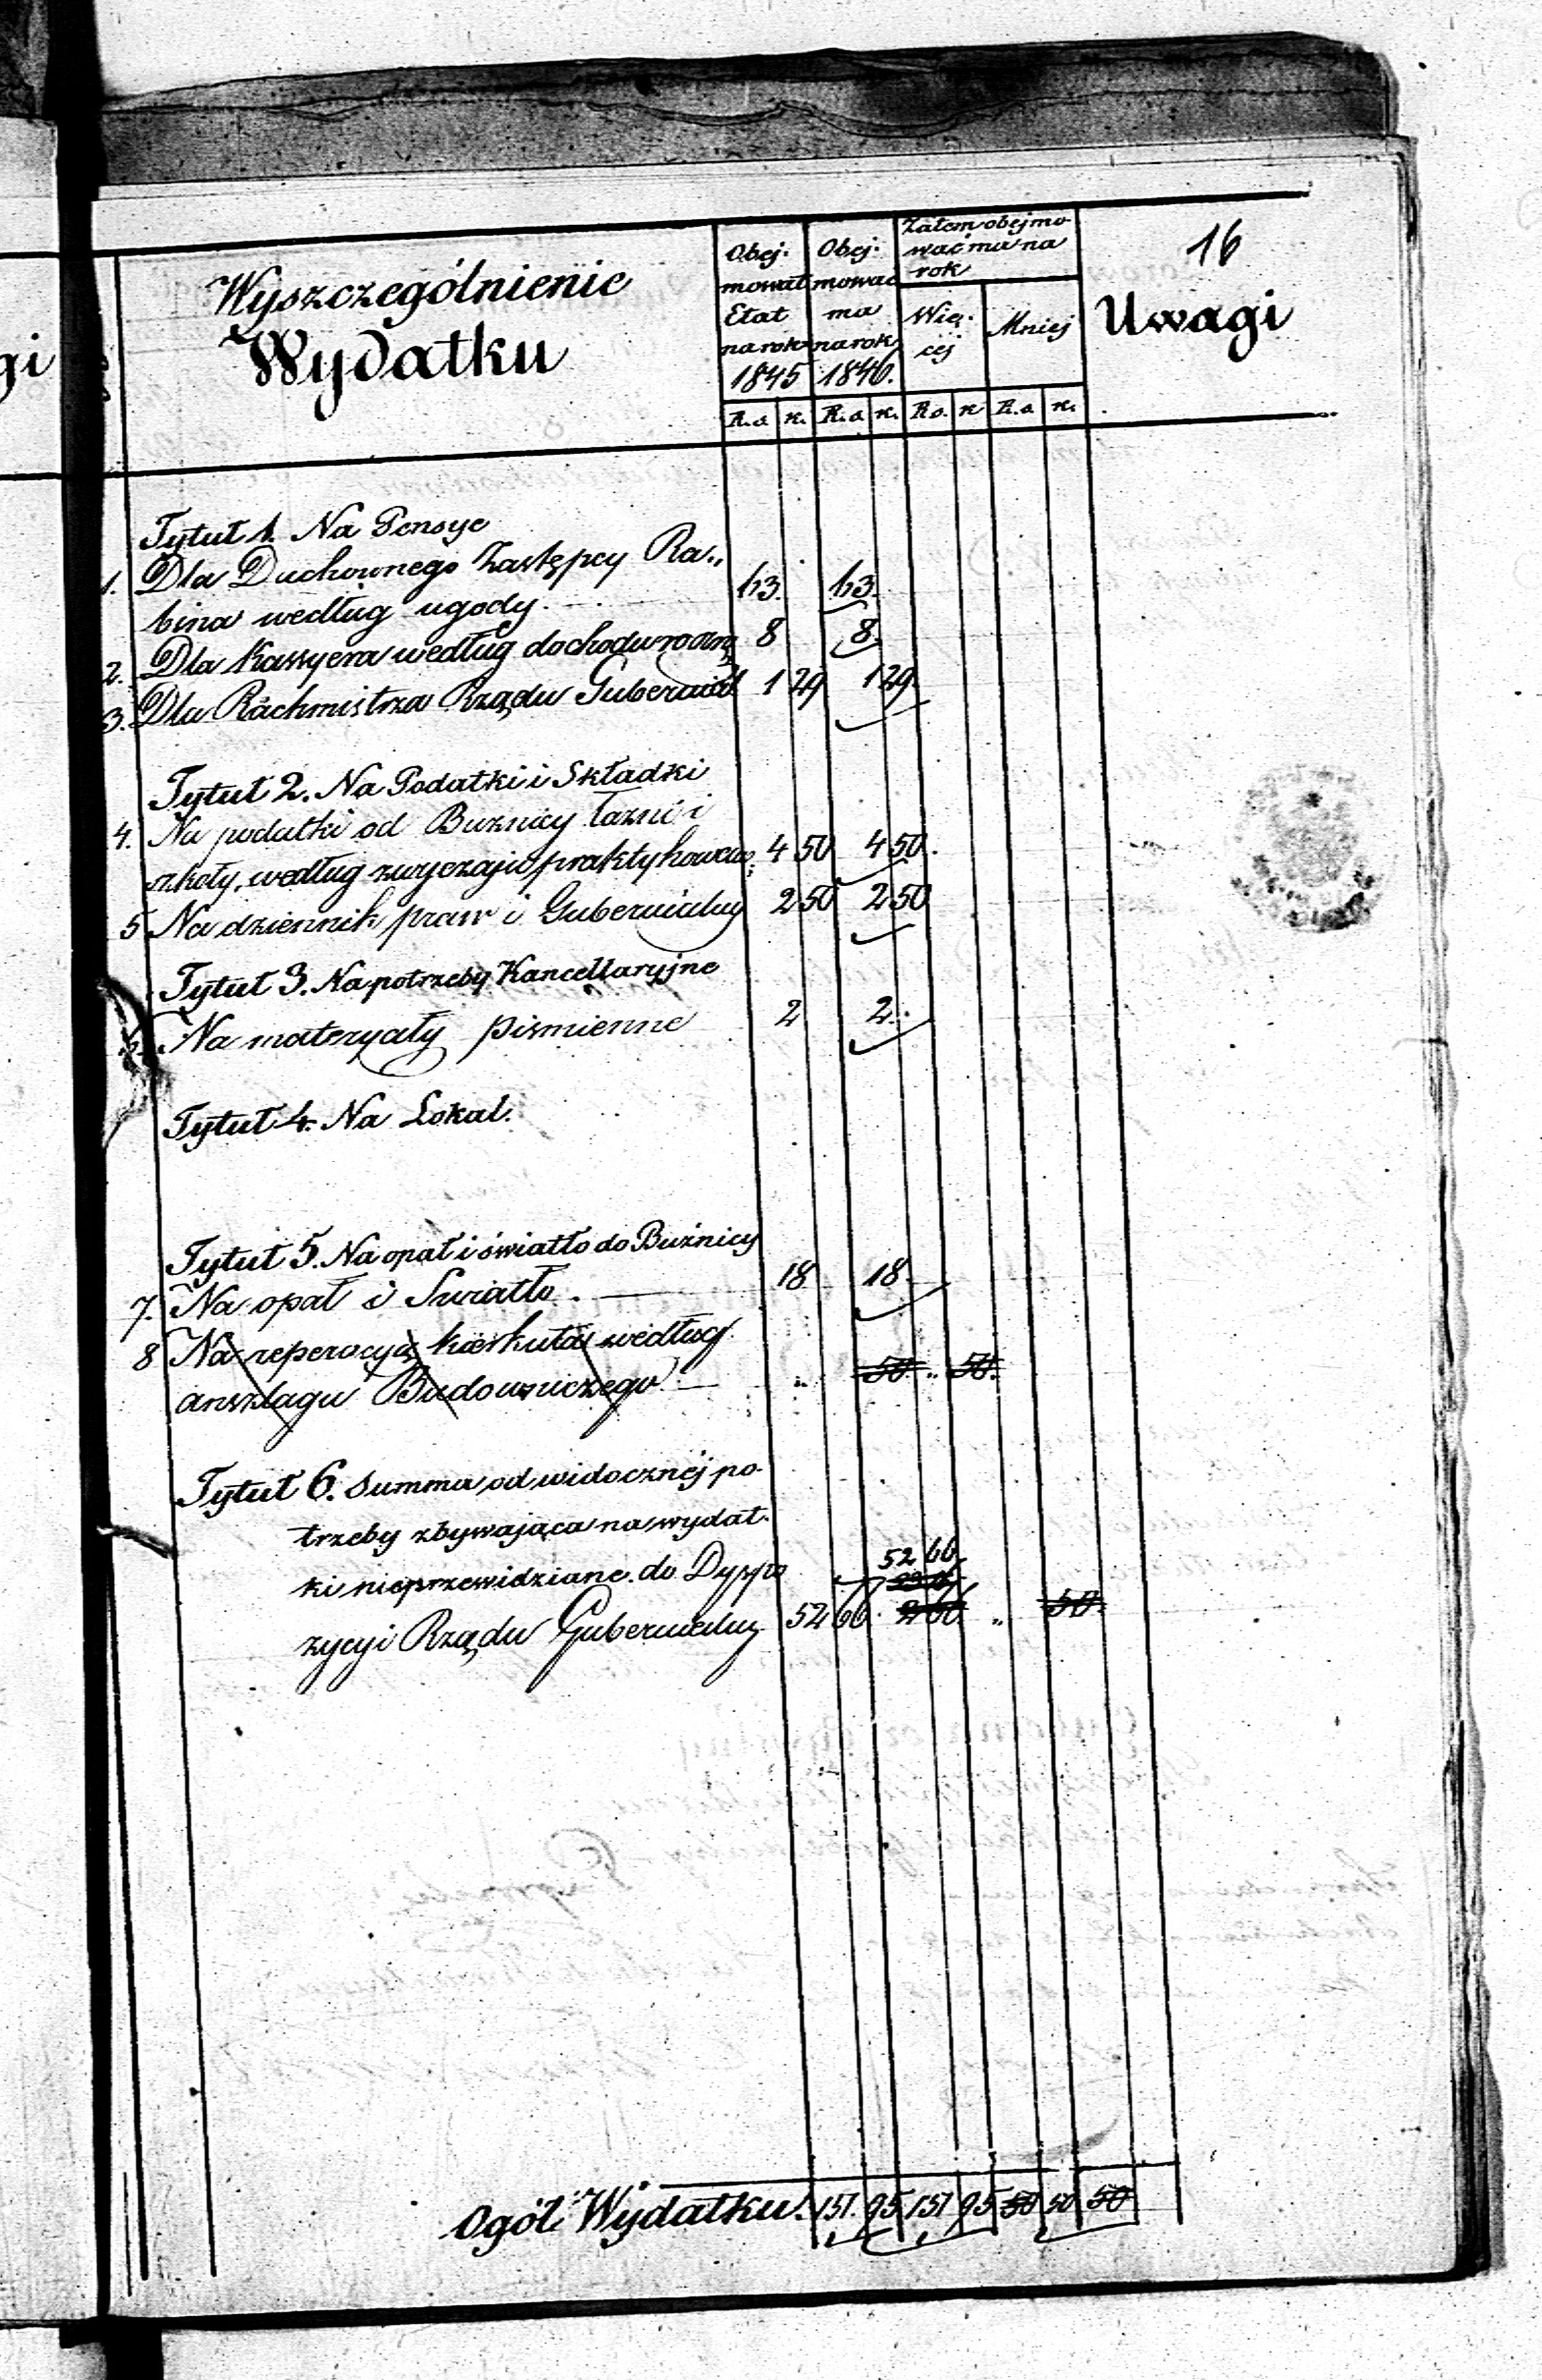 16
Wyszczególnienie
Wydatku
Obej-
mował
Etat
na rok
1845
Obej-
mować
ma
na rok
1846.
Zatem obejmo-
wać ma na
rok
Wię-
cej
Mniej
Uwagi
R.s. k. R.s. k. R.s. k. R.s. k.
Tytuł 1. Na Pensye
1. Dla Duchownego Zastępcy Ra-
bina według ugody. 63. 63.
2. Dla Kassyera według dochodu 8 8.
3. Dla Rachmistrza Rządu Gubernial 1 29 1 29.
Tytuł 2. Na Podatki i Składki
4. Na podatki od Buznicy Łazni i
szkoły, według zwyczaju praktykowan 4 50 4 50.
5 Na dziennik praw i Gubernialny 2 50 2 50
Tytuł 3. Na potrzeby Kancellaryjne
Na materyały piśmienne 2 2.
Tytuł 4. Na Lokal.
Tytuł 5. Na opał i światło do Buźnicy
7. Na opał i Swiatło. 18 18
8 Na reperacyą kierkuta według
anszlagu Budowniczego — „ 50 „ 50.
Tytuł 6. Summa od widocznéj po-
trzeby zbywająca na wydat-
ki nieprzewidziane do Dyspo
52 66.
zycyi Rządu Gubernialny 52 66. 2 66. „ 50.
Ogół Wydatku. 151. 95 151 95 50 50 50